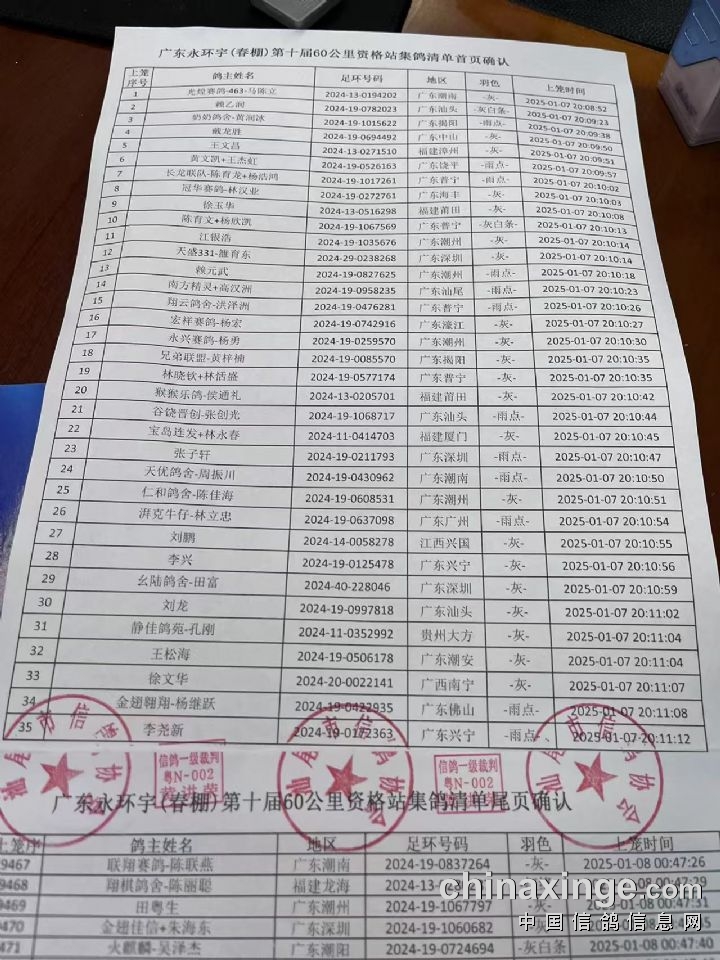 广东永环宇(春棚)第十届60公里资格站集鸽清单首页确认
上笼序号 鸽主姓名 足环号码 地区 羽色 上笼时间
1 光煌赛鸽-463-马陈立 2024-13-0194202 广东潮南 -灰- 2025-01-07 20:08:52
2 赖乙润 2024-19-0782023 广东汕头 -灰白条- 2025-01-07 20:09:23
3 奶奶鸽舍-黄润冰 2024-19-1015622 广东揭阳 -雨点- 2025-01-07 20:09:38
4 戴龙胜 2024-19-0694492 广东中山 -灰- 2025-01-07 20:09:50
5 王文昌 2024-13-0271510 福建漳州 -灰- 2025-01-07 20:09:51
6 黄文凯+王杰虹 2024-19-0526163 广东饶平 -雨点- 2025-01-07 20:09:57
7 长龙联队-陈育龙+杨浩鸿 2024-19-1017261 广东普宁 -雨点- 2025-01-07 20:10:02
8 冠华赛鸽-林汉业 2024-19-0272761 广东海丰 -灰- 2025-01-07 20:10:03
9 徐玉华 2024-13-0516298 福建莆田 -灰- 2025-01-07 20:10:08
10 陈育文+杨欣凯 2024-19-1067569 广东普宁 -灰白条- 2025-01-07 20:10:13
11 江银浩 2024-19-1035676 广东潮州 -灰- 2025-01-07 20:10:14
12 天盛331-雒育东 2024-29-0238268 广东深圳 -灰- 2025-01-07 20:10:14
13 赖元武 2024-19-0827625 广东潮州 -雨点- 2025-01-07 20:10:18
14 南方精灵+高汉洲 2024-19-0958235 广东汕尾 -雨点- 2025-01-07 20:10:23
15 翔云鸽舍-洪泽洲 2024-19-0476281 广东普宁 -雨点- 2025-01-07 20:10:26
16 宏祥赛鸽-杨宏 2024-19-0742916 广东濠江 -灰- 2025-01-07 20:10:27
17 永兴赛鸽-杨勇 2024-19-0259570 广东潮州 -灰- 2025-01-07 20:10:30
18 兄弟联盟-黄梓楠 2024-19-0085570 广东揭阳 -灰- 2025-01-07 20:10:35
19 林晓钦+林恬盛 2024-19-0577174 广东普宁 -灰- 2025-01-07 20:10:35
20 猴猴乐鸽-侯通礼 2024-13-0205701 福建莆田 -灰- 2025-01-07 20:10:42
21 谷饶晋创-张创光 2024-19-1068717 广东汕头 -雨点- 2025-01-07 20:10:44
22 宝岛连发+林永春 2024-11-0414703 福建厦门 -灰- 2025-01-07 20:10:45
23 张子轩 2024-19-0211793 广东深圳 -雨点- 2025-01-07 20:10:47
24 天优鸽舍-周振川 2024-19-0430962 广东潮南 -雨点- 2025-01-07 20:10:50
25 仁和鸽舍-陈佳海 2024-19-0608531 广东潮州 -灰- 2025-01-07 20:10:51
26 湃克牛仔-林立忠 2024-19-0637098 广东广州 -雨点- 2025-01-07 20:10:54
27 刘鹏 2024-14-0058278 江西兴国 -灰- 2025-01-07 20:10:55
28 李兴 2024-19-0125478 广东兴宁 -灰- 2025-01-07 20:10:56
29 幺陆鸽舍-田富 2024-40-228046 广东深圳 -灰- 2025-01-07 20:10:59
30 刘龙 2024-19-0997818 广东汕头 -灰- 2025-01-07 20:11:02
31 静佳鸽苑-孔刚 2024-11-0352992 贵州大方 -灰- 2025-01-07 20:11:04
32 王松海 2024-19-0506178 广东潮安 -灰- 2025-01-07 20:11:04
33 徐文华 2024-20-0022141 广西南宁 -灰- 2025-01-07 20:11:07
34 金翅翱翔-杨继跃 2024-19-0422935 广东佛山 -雨点- 2025-01-07 20:11:08
35 李尧新 2024-19-0172363 广东兴宁 -雨点- 2025-01-07 20:11:12
信鸽一级裁判
粤N-002
黄进荣
信鸽一级裁判
粤N-002
广东永环宇(春棚)第十届60公里资格站集鸽清单尾页确认
上笼序 鸽主姓名 地区 足环号码 羽色 上笼时间
9467 联翔赛鸽-陈联燕 广东潮南 2024-19-0837264 -灰- 2025-01-08 00:47:26
9468 翔棋鸽舍-陈丽聪 福建龙海 2025-01-08 00:47:29
9469 田粤生 广东潮州 2024-19-1067797 -灰- 2025-01-08 00:47:31
9470 金翅佳信+朱海东 广东深圳 2024-19-1060682
9471 火麒麟-吴泽杰 广东潮阳 2024-19-0724694 -灰白条 2025-01-08 00:47:40
chinaxinge.com
中国信鸽信息网